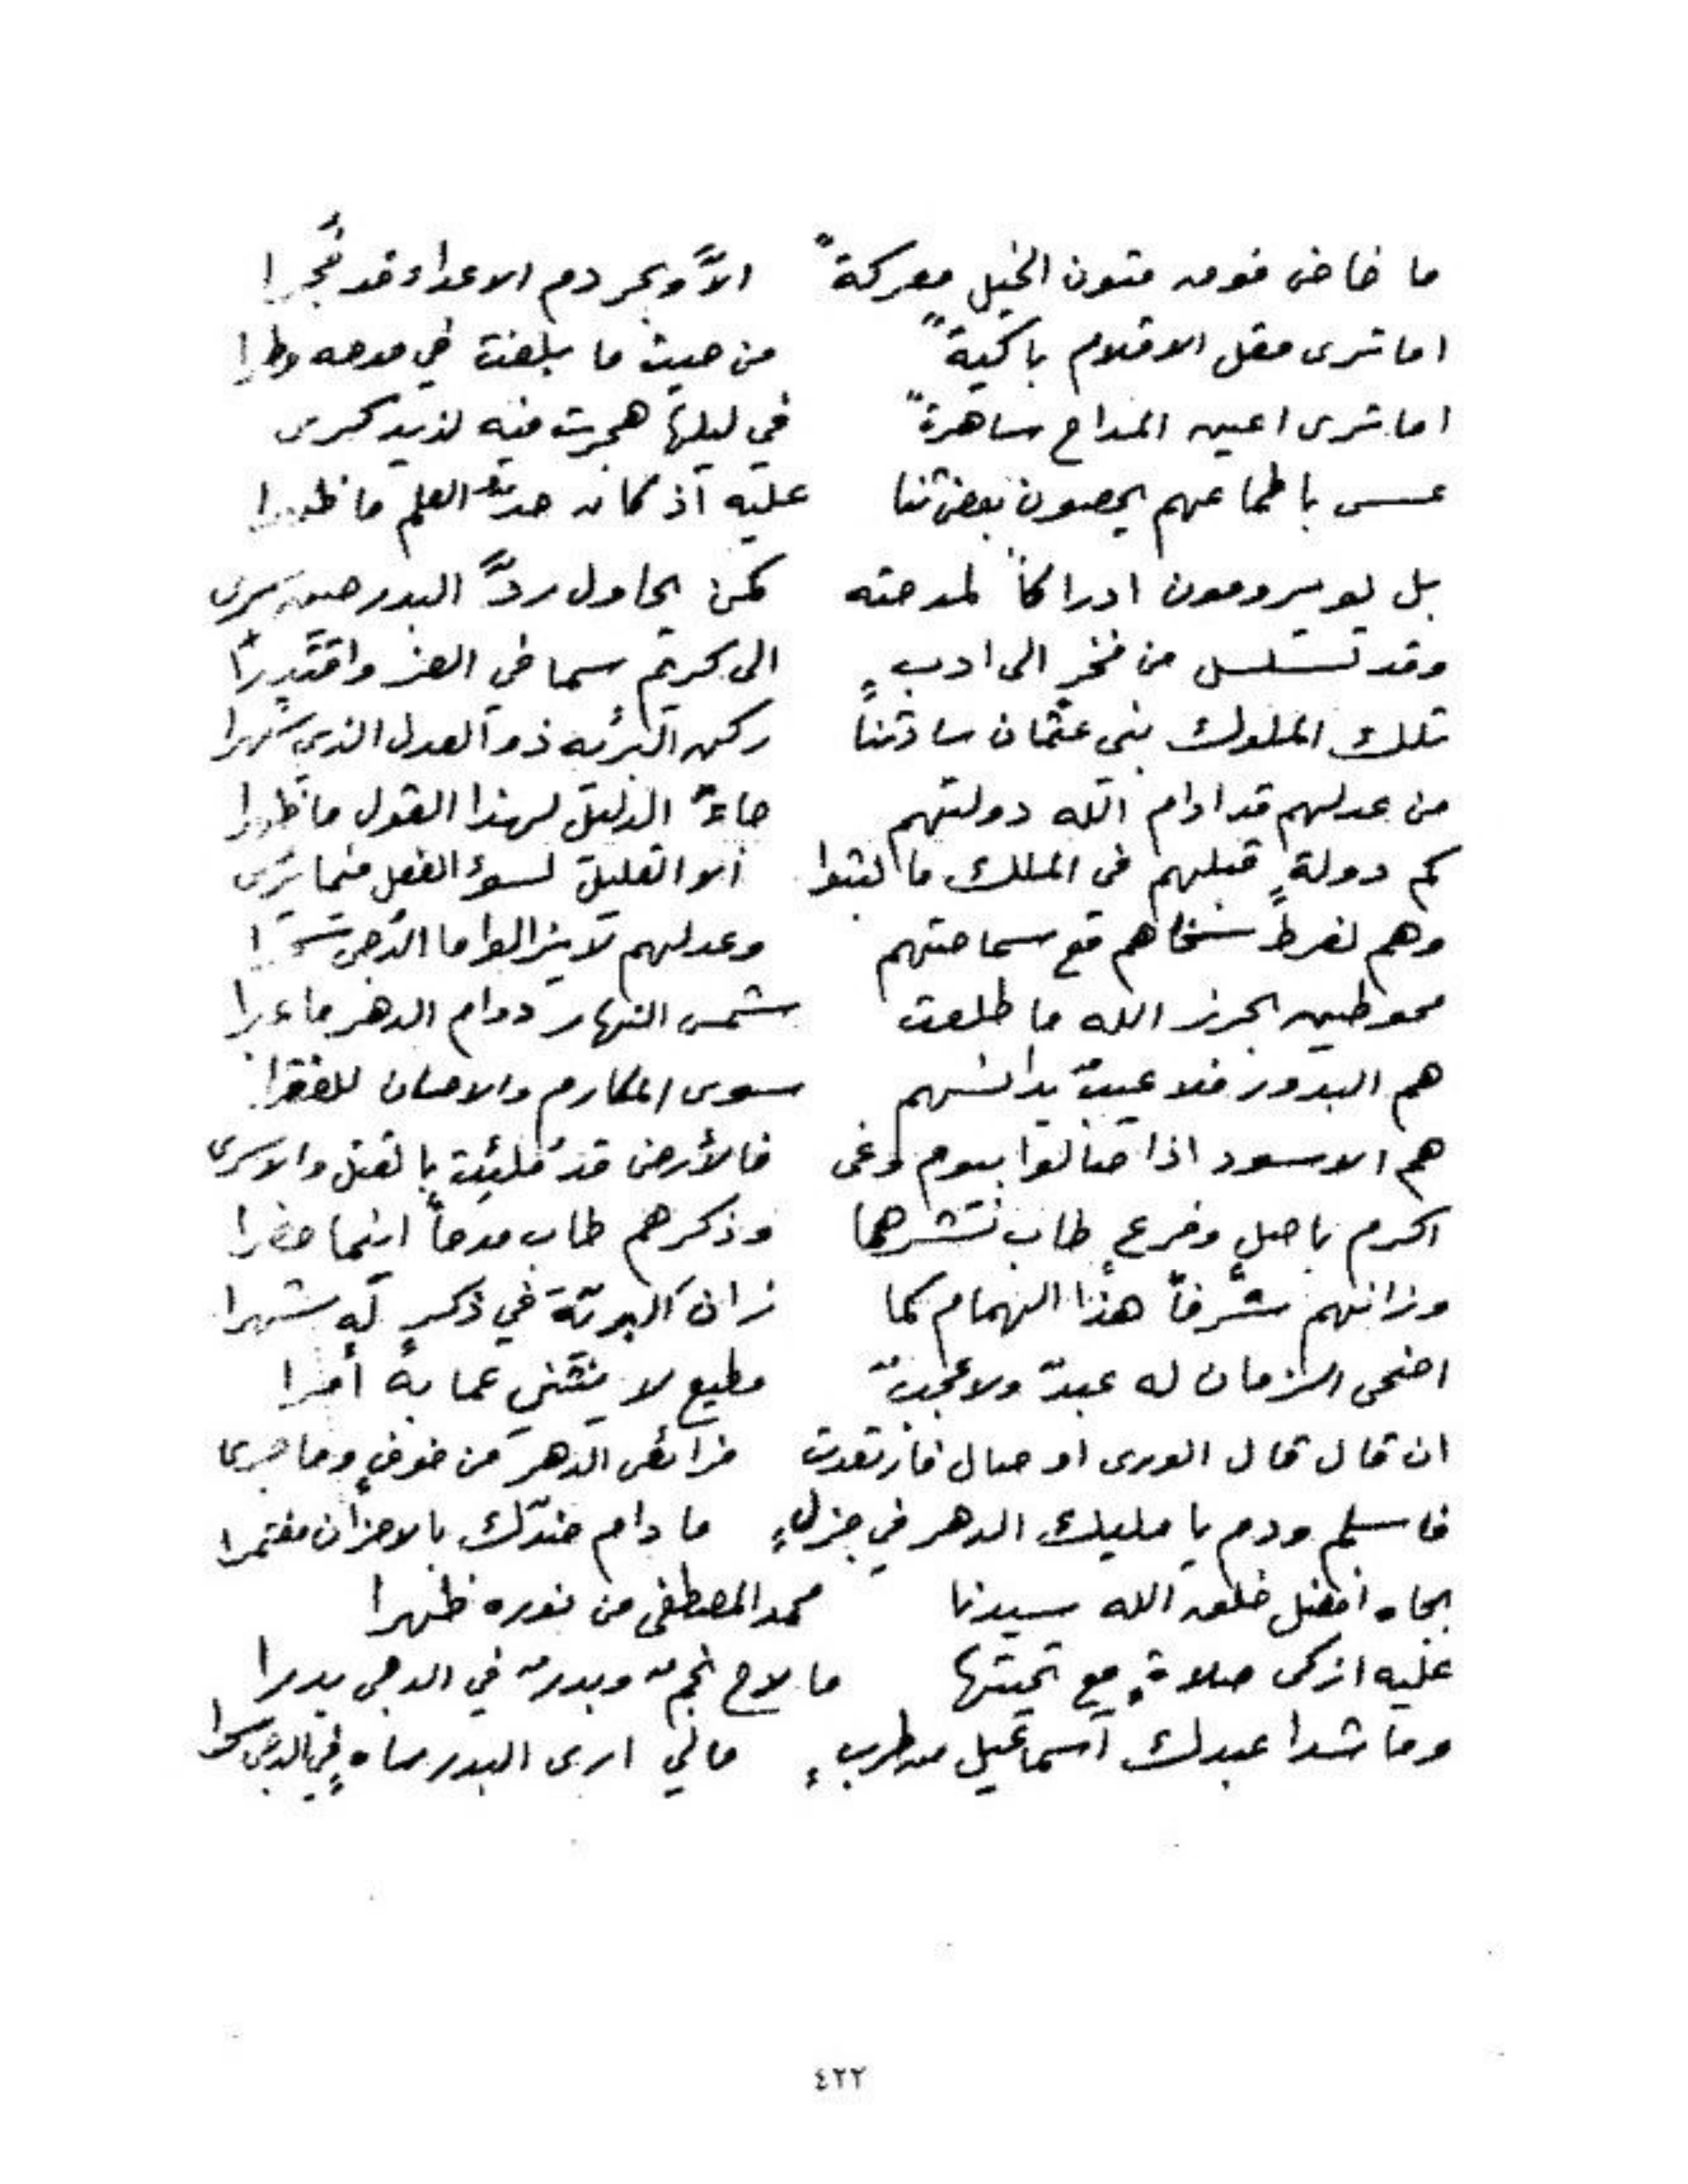 ما خاض فوق متون الخيل معركةً الاَّ وبحر دم الاعداء قد فُجرا
اما ترى مقل الاقلام باكيةً من حيث ما بلغت في مدحه وطرا
اما ترى اعين المداح ساهرةً في ليلها هجرت فيه لذيذ كرى
عسى باطماعهم يحصون بعض ثنا عليه اذ كان حدّ العلم ما
بل لو يرومون ادراكاً لمدحته كمن يحاول ردَّ البدر حين سرى
وقد تسلسل من فخرٍ الى ادبٍ الى كريم سما في العز واقتدرا
تلك الملوك بني عثمان سادتنا ركن البريه ذو العدل الذي شهرا
من عدلهم قد ادام الله دولتهم جاءَ الدليل لهذا القول ما
كم دولةٍ قبلهم في الملك ما لبثوا الا القليل لسوء الفعل فيما يرى
وهم لفرط سخاهم مع سماحتهم وعدلهم لا يزالوا ما الدجى
محوطين بحرز الله ما طلعت شمس النهار دوام الدهر ما
هم البدور فلا عيبٌ يدانسهم سوى المكارم والاحسان للفقرا
هم الاسود اذا صالوا بيوم وغى فالأرض قد مُلئِت بالقتل والاسرى
اكرم باصلٍ وفرعٍ طاب نشرهما وذكرهم طاب مدحاً اينما حضرا
وزانهم شرفاً هذا الهمام كما زان البريّة في ذكرٍ له شهرا
اضحى الزمان له عبدٌ ولا عجبٌ مطيع لا ينثني عما به أمرا
ان قال قال الورى او صال فارتعدت فرائص الدهر من خوفٍ وما جرى
فاسلم ودم يا مليك الدهر في جزلٍ ما دام ضدّك بالاحزان مغتمرا
بجاه افضل خلق الله سيدنا محمد المصطفى من نوره ظهرا
عليه ازكى صلاةٍ مع تحيتها ما لاح نجمٌ وبدرٌ في الدجى بدرا
وما شدا عبدك اسماعيل من طربٍ مالي ارى البدر ساهٍ في الدجى
٤٢٢